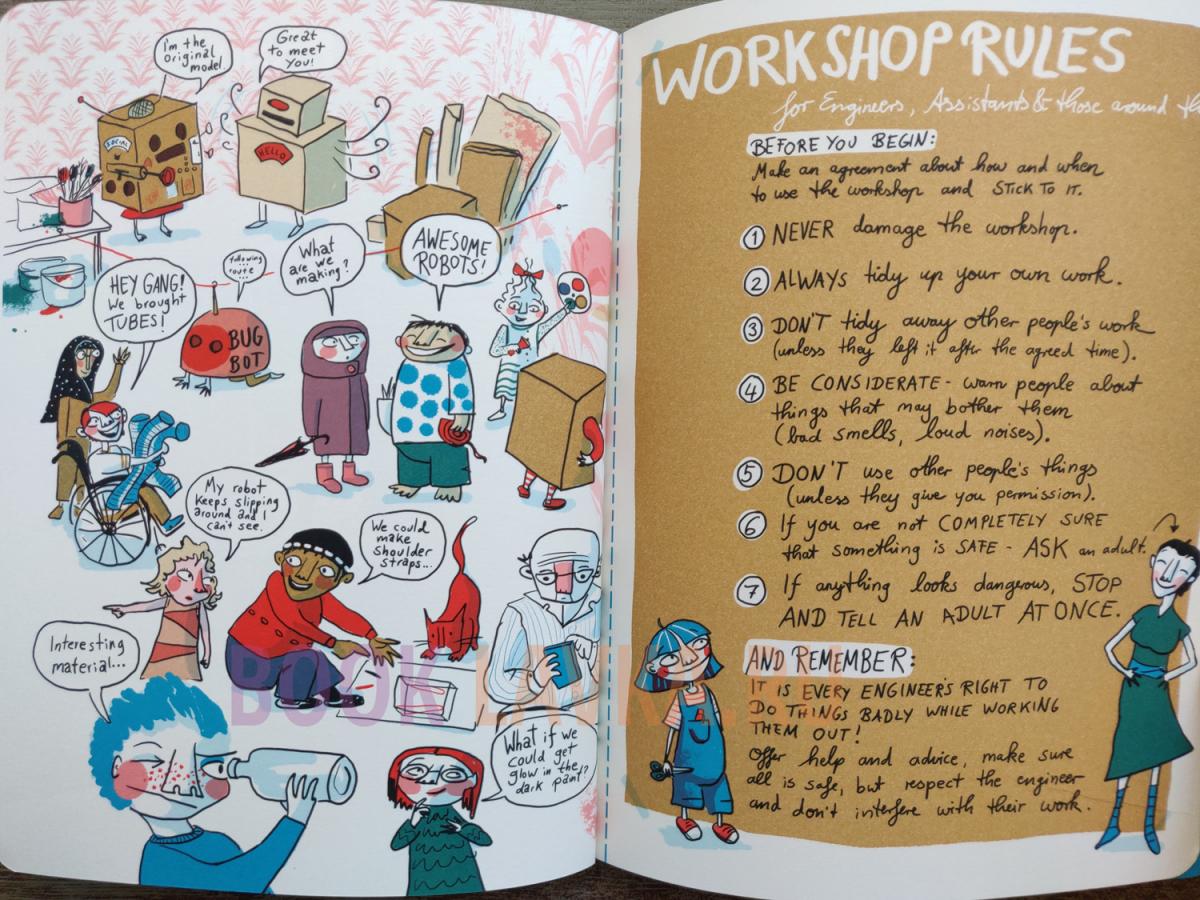 I'm the
original
model
Great
to meet
you!
SOCIAL
HELLO
HEY GANG!
We brought
TUBES!
following
route
...
What
are we
making?
AWESOME
ROBOTS!
BUG
BOT
My robot
keeps slipping
around and I
can't see.
We could
make
shoulder
straps...
Interesting
material...
What if we
could get
glow in the
dark paint?
WORKSHOP RULES
for Engineers, Assistants & those around
BEFORE YOU BEGIN:
Make an agreement about how and when
to use the workshop and STICK TO IT.
1 NEVER damage the workshop.
2 ALWAYS tidy up your own work.
3 DON'T tidy away other people's work
(unless they left it after the agreed time).
4 BE CONSIDERATE - warn people about
things that may bother them
(bad smells, loud noises).
5 DON'T use other people's things
(unless they give you permission).
6 If you are not COMPLETELY SURE
that something is SAFE - ASK an adult.
7 If anything looks dangerous, STOP
AND TELL AN ADULT AT ONCE.
AND REMEMBER:
IT IS EVERY ENGINEER'S RIGHT TO
DO THINGS BADLY WHILE WORKING
THEM OUT!
Offer help and advice, make sure
all is safe, but respect the engineer
and don't interfere with their work.